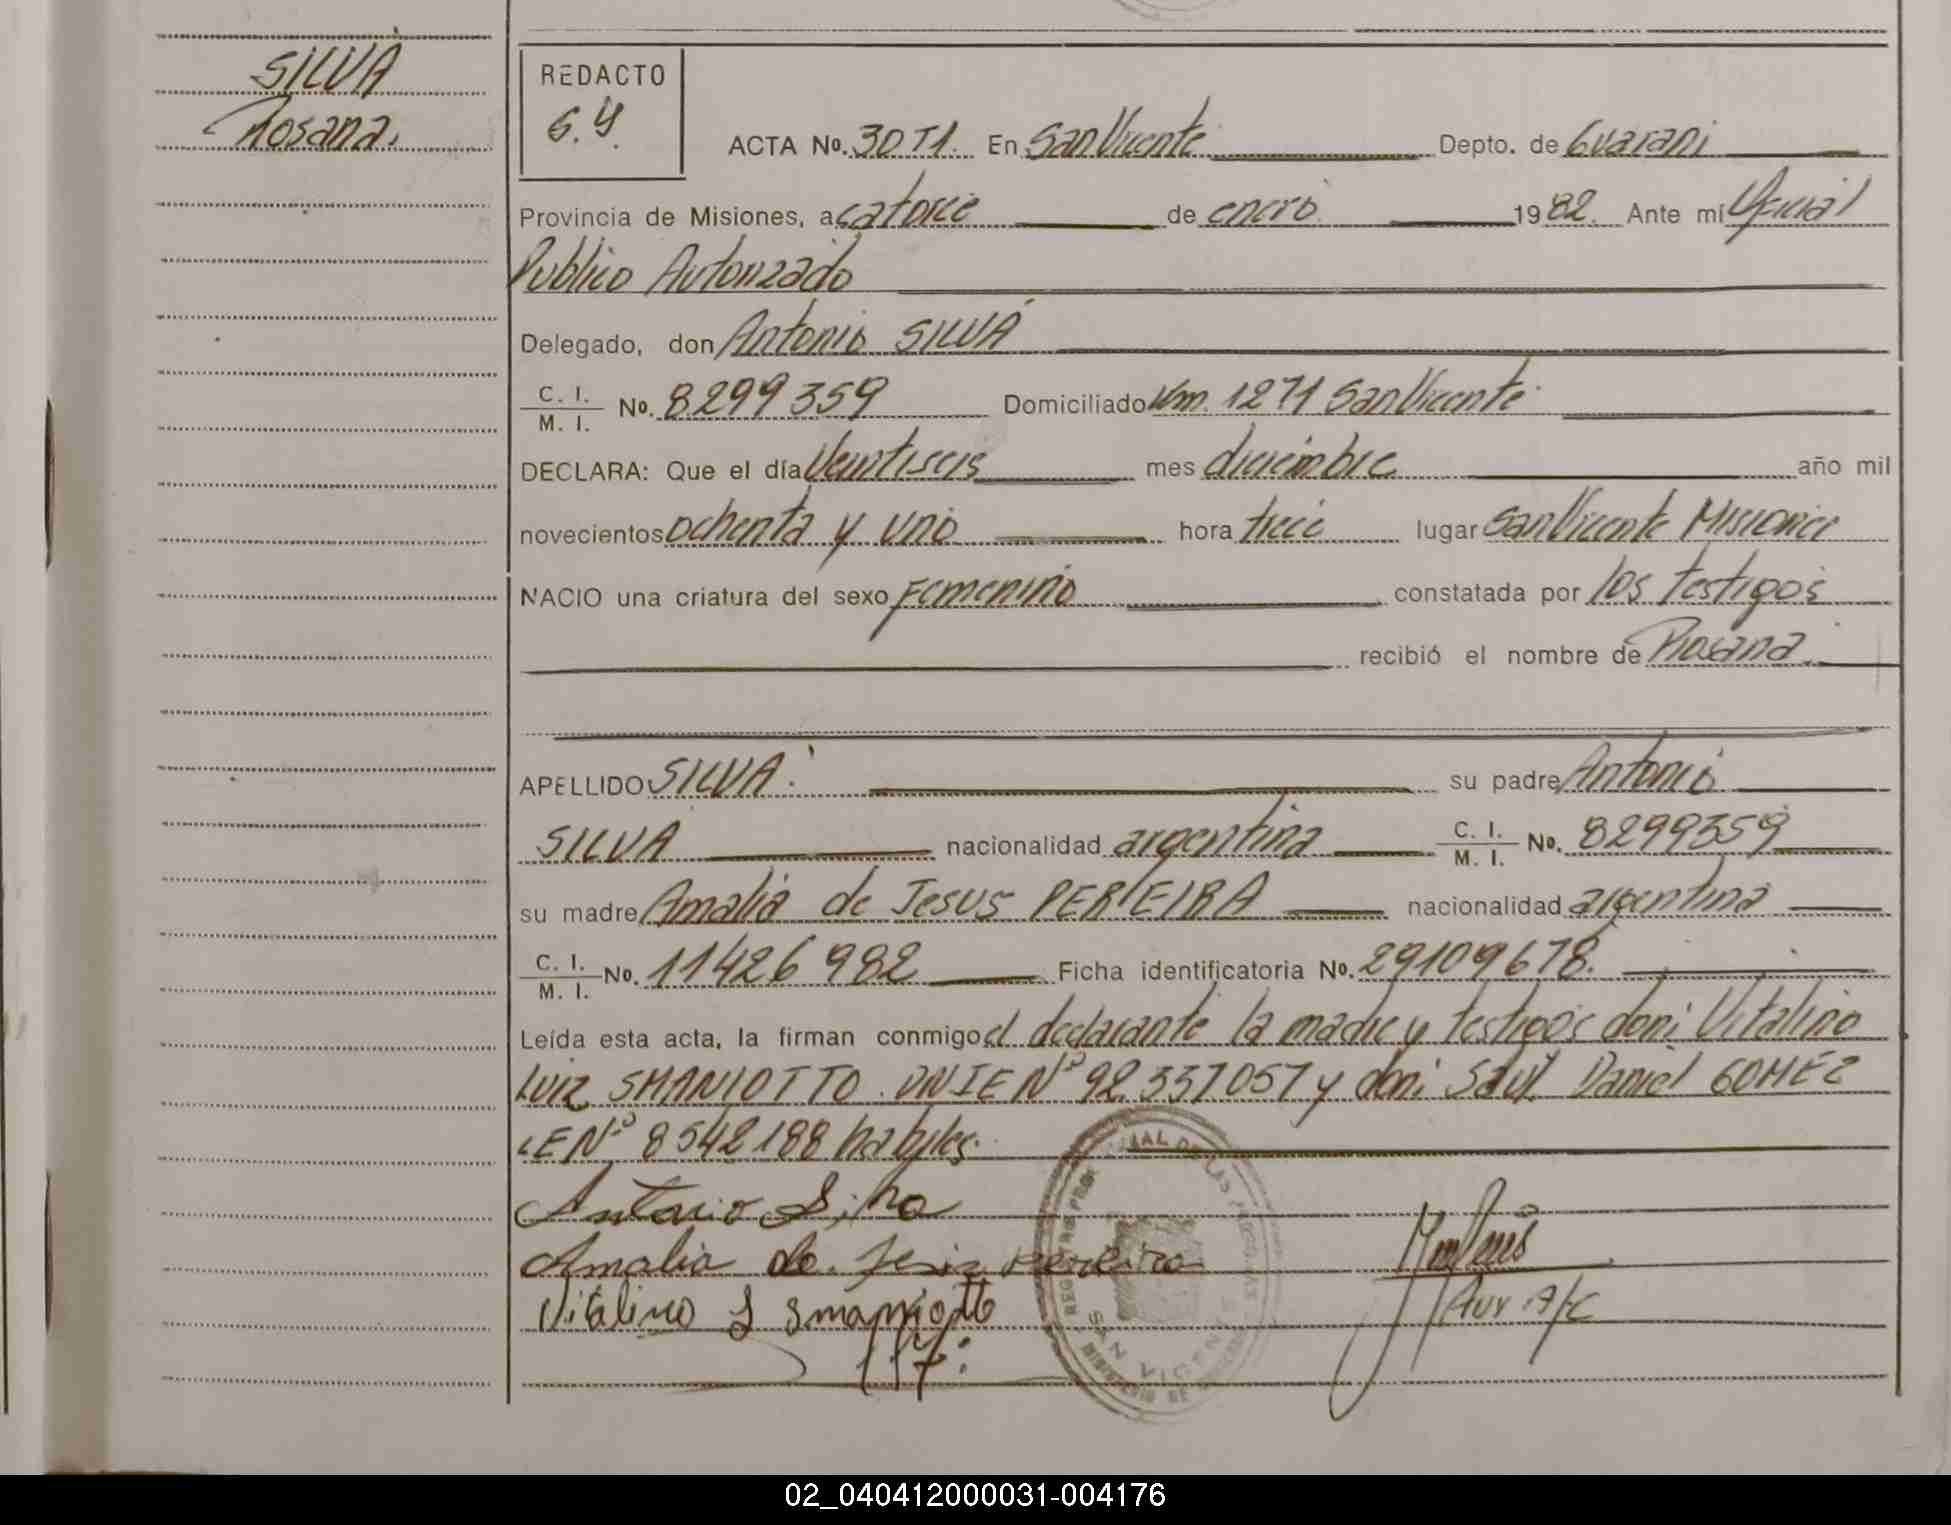 SILVA
Rosana.
REDACTO
S.Y.
ACTA No. 30 T1. En San Vicente Depto. de Guarani
Provincia de Misiones, a catorce de enero 1982. Ante mí Oficial
Publico Autorizado
Delegado, don Antonio SILVA
C. I. / M. I. No. 8299359 Domiciliado Km. 1271 San Vicente
DECLARA: Que el día Veintiseis mes diciembre año mil
novecientos ochenta y uno hora trece lugar San Vicente Misiones
NACIO una criatura del sexo Femenino constatada por los testigos
recibió el nombre de Rosana.
APELLIDO SILVA. su padre Antonio
SILVA nacionalidad argentina C. I. / M. I. No. 8299359
su madre Amalia de Jesus PEREIRA nacionalidad argentina
C. I. / M. I. No. 11426982 Ficha identificatoria No. 29109678.
Leída esta acta, la firman conmigo el declarante la madre y testigos don: Vitalino
Luiz SMANIOTTO. DNIE Nº 92.337057 y don: Saul Daniel GOMEZ
LE Nº 8542188 habiles.
Antonio Silva
Amalia de Jesus Pereira
Vitalino L Smaniotto
REGISTRO PROVINCIAL DE LAS PERSONAS
SAN VICENTE
02_040412000031-004176